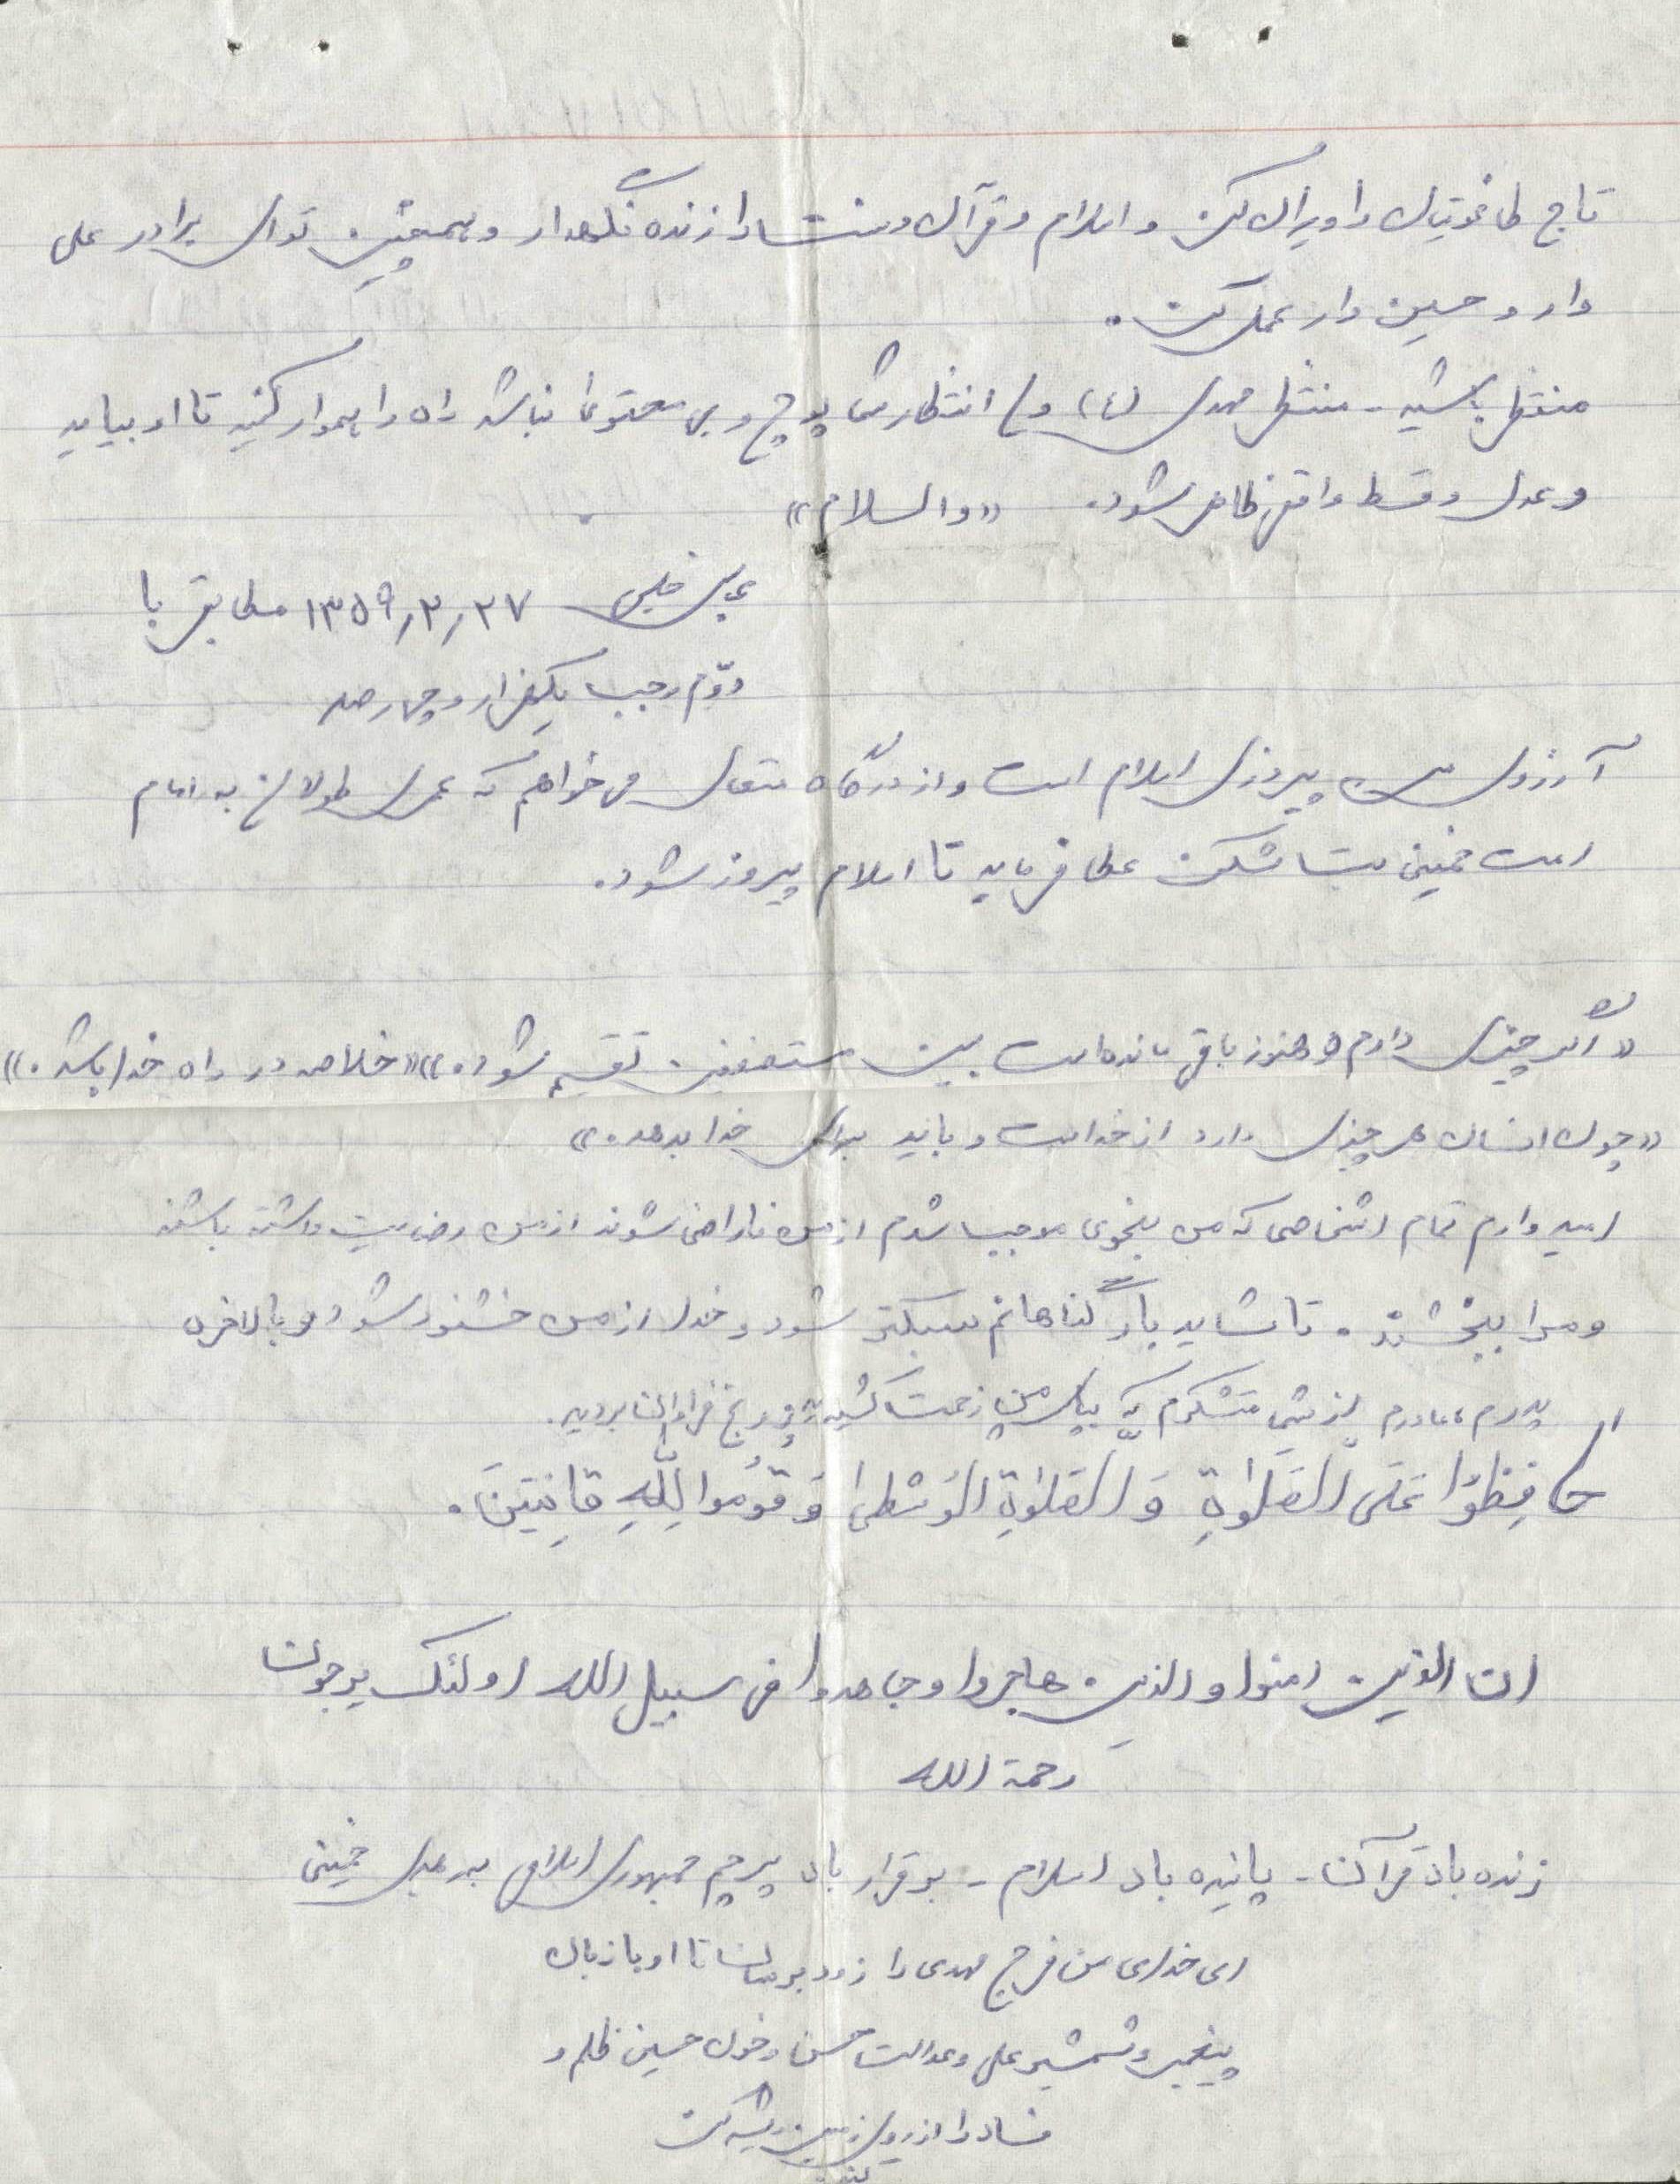 تاج طاغوتیان را ویران کن و اسلام و قرآن و سنت را زنده نگهدار و همچنین تو ای برادر علی
وار و حسین وار عمل کن.
منتظر باشید - منتظر مهدی (ع) ولی انتظارش پوچ و بی محتوی نباشد راه را هموار کنید تا او بیاید
و عدل و قسط واقعی ظاهر شود. «والسلام»
۱۳۵۹٫۲٫۲۷ مطابق با
دوّم رجب یکهزار و چهارصد
آرزوی من پیروزی اسلام است و از درگاه متعال می خواهم که عمری طولانی به امام
امت خمینی بت شکن عطا فرماید تا اسلام پیروز شود.
«اگر چیزی دارم و هنوز باقی مانده است بین مستضعفین تقسیم شود.» «خلاصه در راه خدا باشد.»
«چون انسان هر چیزی دارد از خداست و باید برای خدا بدهد.»
امیدوارم تمام اشخاصی که من بنحوی موجب شدم از من ناراضی شوند از من رضایت داشته باشند
و مرا ببخشند. تا شاید بار گناهانم سبکتر شود و خدا از من خشنود شود و بالاخره
پدرم، مادرم از شما متشکرم که برای من زحمت کشیدید و رنج فراوان بردید.
حَافِظُوا عَلَی الصَّلَوٰتِ وَ الصَّلوٰةِ الْوُسْطیٰ وَ قُومُوا لِلّٰهِ قٰانِتینَ.
ان الذین امنوا والذین هاجروا و جاهدوا فی سبیل الله اولئک یرجون
رحمة الله
زنده باد قرآن - پاینده باد اسلام - برقرار باد پرچم جمهوری اسلامی به رهبری خمینی
ای خدای من فرج مهدی را زود برسان تا او با زبان
پیغمبر و شمشیر علی و عدالت حسن و خون حسین ظلم و
فساد را از روی زمین ریشه کن
کند.